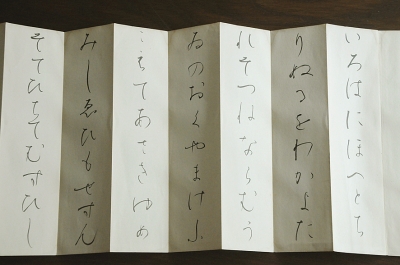 いろはにほへとち
りぬるをわかよた
れそつねならむう
ゐのおくやまけふ
こえてあさきゆめ
みしゑひもせすん
そてひちてむすひし